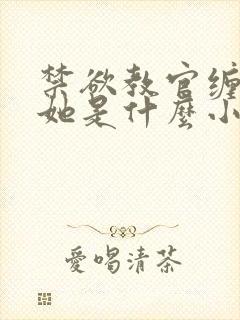 禁欲教官缠
她是什麼小
爱喝清茶